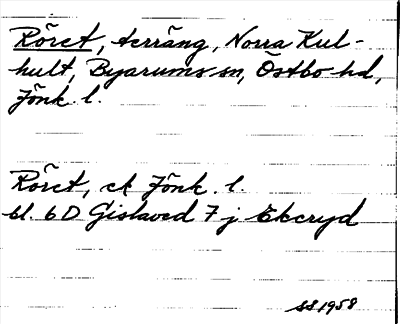 Röret, terräng, Norra Kul-
hult, Byarums sn, Östbo hd,
Jönk. l.
Röret, ek Jönk. l.
bl. 6D Gislaved 7 j Ekeryd
SS 1958